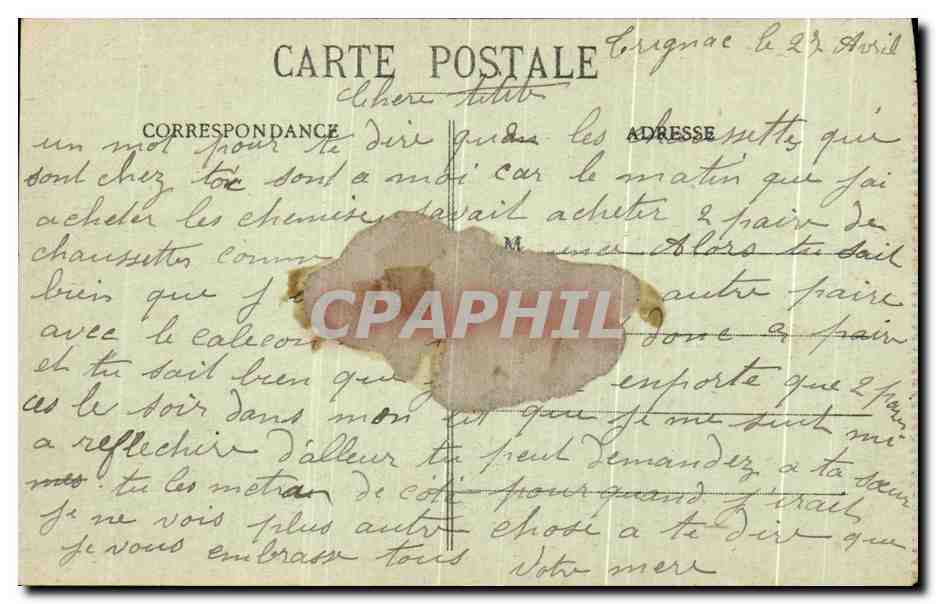 Trignac le 27 Avril
CARTE POSTALE
Chere titib
CORRESPONDANCE
ADRESSE
un mot pour te dire quan les chaussettes que
sont chez toi sont a moi car le matin que j'ai
acheter les chemise j'avait acheter 2 paire de
M
chaussettes comme Alors tu sait
bien que je autre paire
avec le calecon donc 2 paire
et tu sait bien que j enporte que 2 pair
ces le soir dans mon lit que je me suit mi
a reflechire d'alleur tu peut demandez a ta sœur
mes tu les metra de côté pourquand j'irait
je ne vois plus autre chose a te dire que
je vous embrasse tous
Votre mere
CPAPHIL